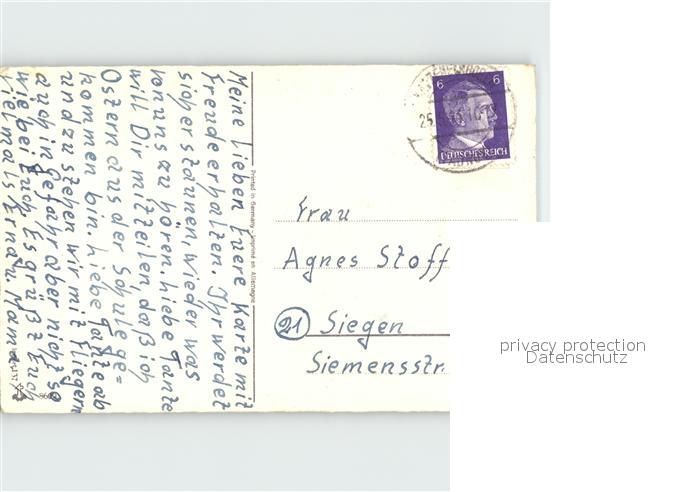 Meine Lieben Euere Karte mit
Freude erhalten. Ihr werdet
sicher staunen, wieder was
von uns zu hören. Liebe Tante
will Dir mitteilen, daß ich
Ostern aus der Schule ge=
kommen bin. Liebe Tante ab
und zu stehen wir mit Fliegern
auch in Gefahr aber nicht so
wie bei Euch. Es grüßt Euch
vielmals Erna u. Mama
Printed in Germany - Imprimé en Allemagne
6 6
DEUTSCHES REICH
25
Frau
Agnes Stoff
21 Siegen
Siemensstr.
privacy protection
Datenschutz